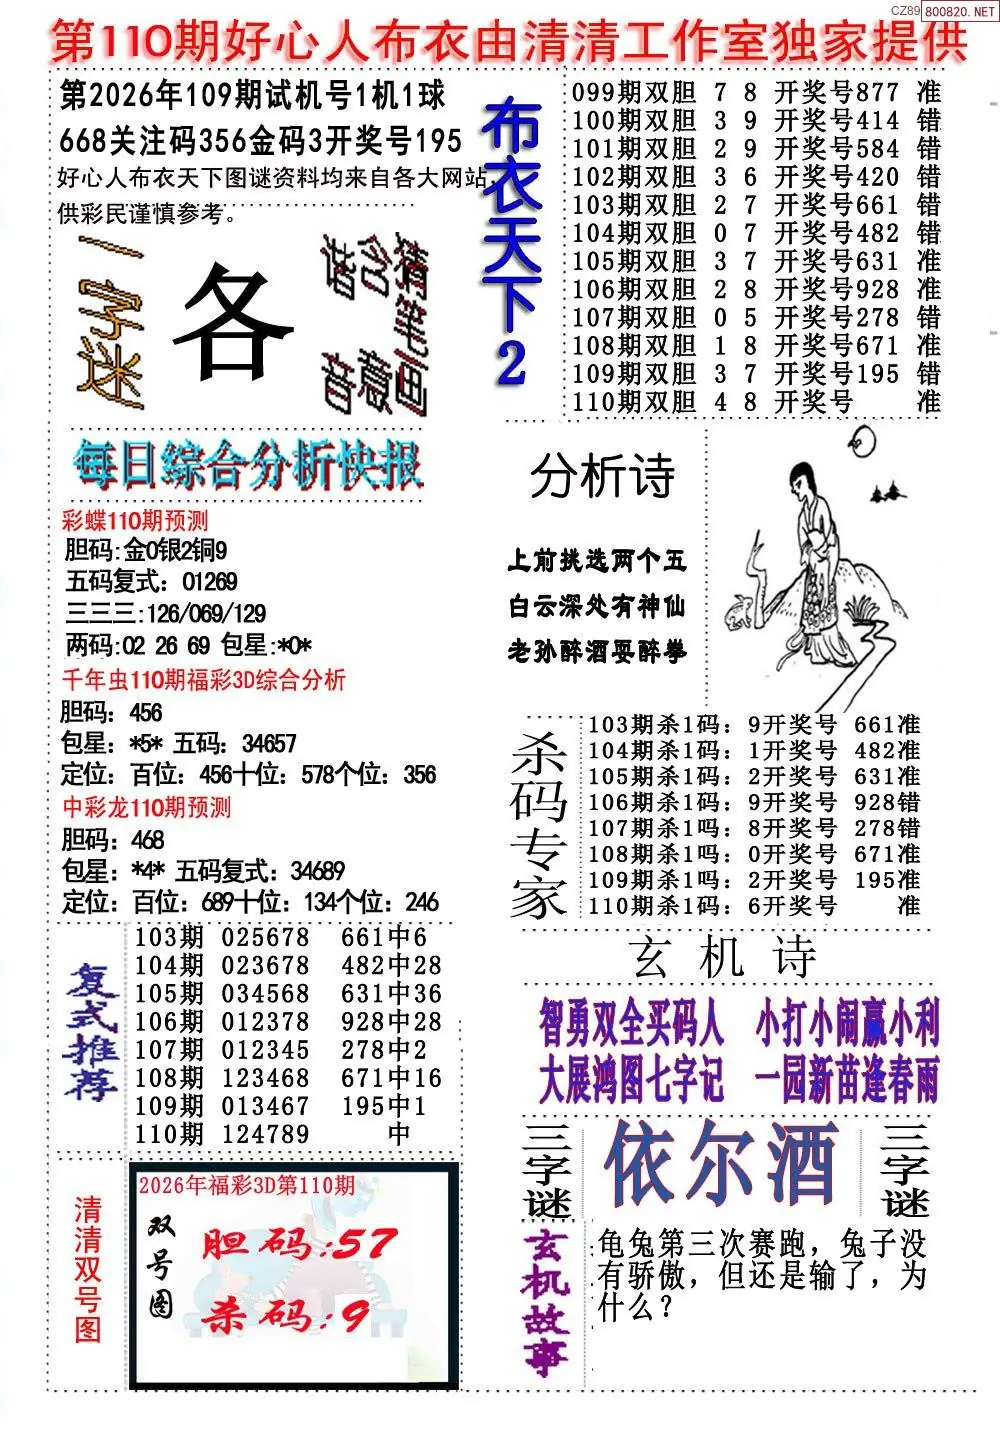 CZ89 800820.NET
第110期好心人布衣由清清工作室独家提供
第2026年109期试机号1机1球
668关注码356金码3开奖号195
好心人布衣天下图谜资料均来自各大网站,
供彩民谨慎参考。
一字迷
各
猜笔画
含意
谐音
布衣天下2
099期双胆 7 8 开奖号877 准
100期双胆 3 9 开奖号414 错
101期双胆 2 9 开奖号584 错
102期双胆 3 6 开奖号420 错
103期双胆 2 7 开奖号661 错
104期双胆 0 7 开奖号482 错
105期双胆 3 7 开奖号631 准
106期双胆 2 8 开奖号928 准
107期双胆 0 5 开奖号278 错
108期双胆 1 8 开奖号671 准
109期双胆 3 7 开奖号195 错
110期双胆 4 8 开奖号 准
每日综合分析快报
彩蝶110期预测
胆码:金0银2铜9
五码复式：01269
三三三:126/069/129
两码:02 26 69 包星:*0*
千年虫110期福彩3D综合分析
胆码：456
包星：*5* 五码：34657
定位：百位：456十位：578个位：356
中彩龙110期预测
胆码：468
包星：*4* 五码复式：34689
定位：百位：689十位：134个位：246
分析诗
上前挑选两个五
白云深处有神仙
老孙醉酒耍醉拳
杀码专家
103期杀1码：9开奖号 661准
104期杀1码：1开奖号 482准
105期杀1码：2开奖号 631准
106期杀1码：9开奖号 928错
107期杀1吗：8开奖号 278错
108期杀1吗：0开奖号 671准
109期杀1吗：2开奖号 195准
110期杀1码：6开奖号 准
复式推荐
103期 025678 661中6
104期 023678 482中28
105期 034568 631中36
106期 012378 928中28
107期 012345 278中2
108期 123468 671中16
109期 013467 195中1
110期 124789 中
玄机诗
智勇双全买码人 小打小闹赢小利
大展鸿图七字记 一园新苗逢春雨
三字谜
依尔酒
三字谜
清清双号图
2026年福彩3D第110期
双号图
胆码:57
杀码:9
玄机故事
龟兔第三次赛跑，兔子没
有骄傲，但还是输了，为
什么？